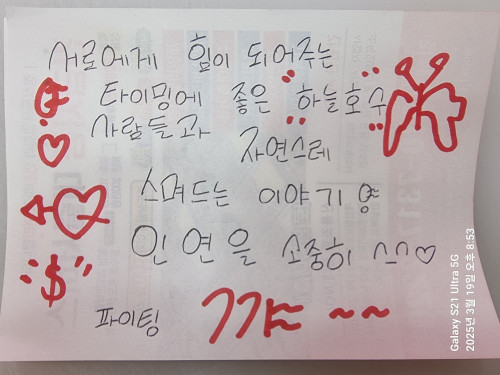 서로에게 힘이 되어주는
타이밍에 좋은 하늘호수
사람들과 자연스레
스며드는 이야기
인연을 소중히 ㅅㄱ♡
$
파이팅 ㄱㄱㅑ~ ~~
Galaxy S21 Ultra 5G
2025년 3월 19일 오후 8:53